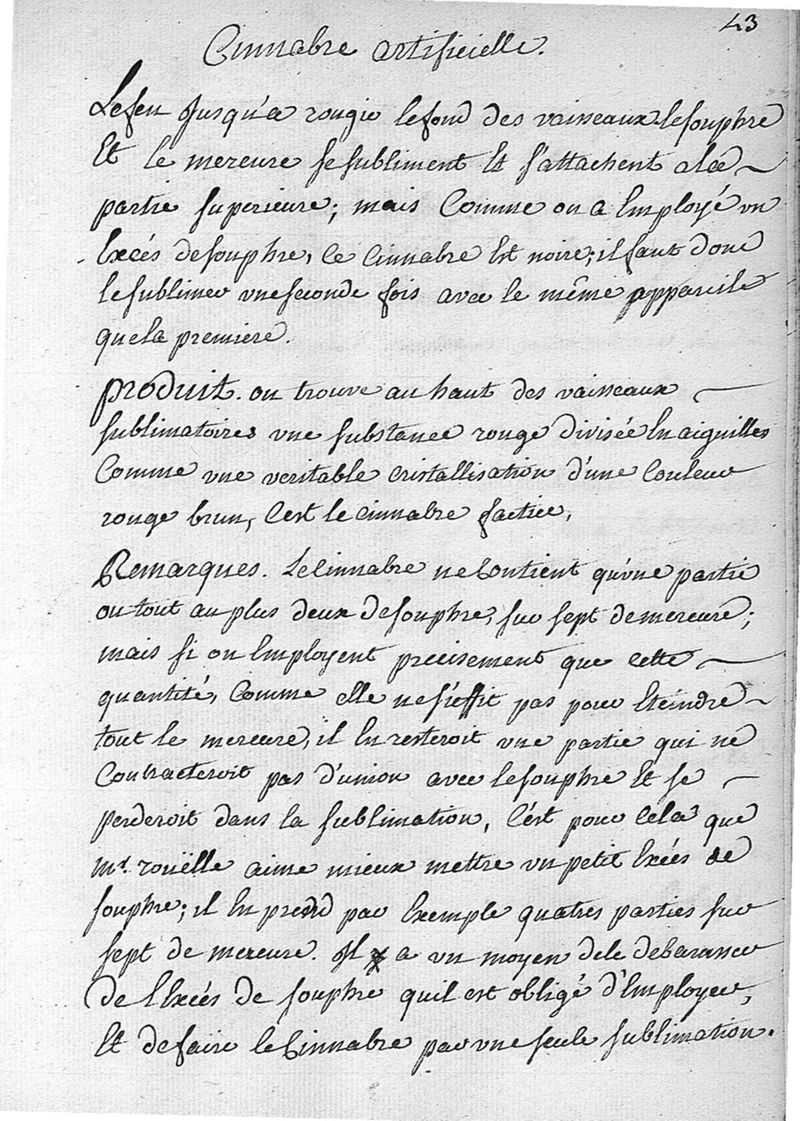 43
Cinnabre artificielle.
Le feu Jusqu'a rougir le fond des vaisseaux. le souphre
Et le mercure se subliment Et s'attachent a la
partie superieure; mais Comme on a Employé vn
Excés de souphre, ce Cinnabre Est noire; il faut donc
le sublimer vne seconde fois avec le même appareile
que la premiere.
produit. on trouve au haut des vaisseaux
sublimatoires vne substance rouge divisée En aiguilles
Comme vne veritable cristallisation d'une Couleur
rouge brun, C'est le cinnabre factice,
Remarques. Le Cinnabre ne Contient qu'vne partie
ou tout au plus deux de souphre, sur sept de mercure;
mais si on Employent precisement que cette
quantité, Comme elle ne suffit pas pour Eteindre
tout le mercure, il En resteroit vne partie qui ne
Contracteroit pas d'union avec le souphre Et se
perderoit dans la sublimation, C'est pour Cela que
mr. rouëlle aime mieux mettre vn petit Excés de
souphre; il En prend par Exemple quatres parties sur
sept de mercure. Il y a vn moyen de le debarancer
de l'Excés de souphre quil est obligé d'Employer,
Et de faire le Cinnabre par vne seule sublimation.